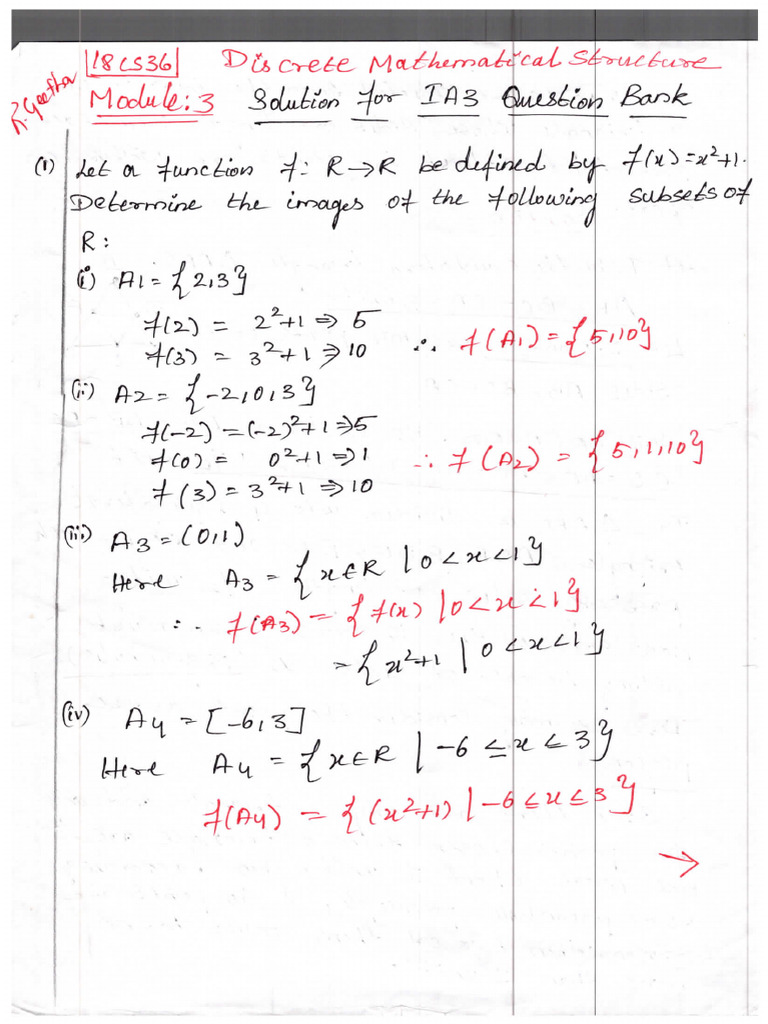 18CS36 Discrete Mathematical Structure
R.Geetha
Module:3 Solution for IA3 Question Bank
(1) Let a function f: R→R be defined by f(x)=x²+1.
Determine the images of the following subsets of
R:
(i) A1= {2,3}
f(2) = 2²+1 ⇒ 5
f(3) = 3²+1 ⇒10 ∴ f(A1) = {5,10}
(ii) A2= {-2,0,3}
f(-2) =(-2)²+1⇒5
f(0) = 0²+1⇒1 ∴ f(A2) = {5,1,10}
f(3) = 3²+1 ⇒10
(iii) A3=(0,1)
Here A3= {x∈R | 0<x<1}
∴ f(A3) = {f(x) | 0<x<1}
={x²+1 | 0<x<1}
(iv) A4 = [-6,3]
Here A4 = {x∈R | -6 ≤ x ≤ 3}
f(A4) = {(x²+1) | -6≤x≤3}
→